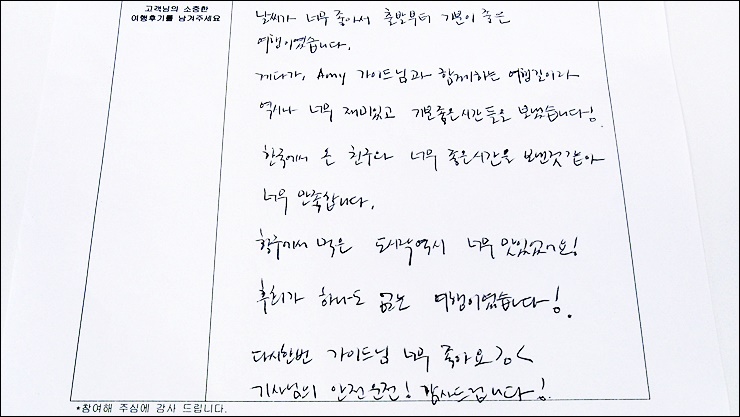 고객님의 소중한
여행후기를 남겨주세요
날씨가 너무 좋아서 출발부터 기분이 좋은
여행이였습니다.
게다가, Amy 가이드님과 함께하는 여행길이라
역시나 너무 재미있고 기분좋은시간들을 보냈습니다!
한국에서 온 친구와 너무 좋은시간을 보낸것같아
너무 만족합니다.
항주에서 먹은 도시락역시 너무 맛있었어요!
후회가 하나도 없는 여행이였습니다!
다시한번 가이드님 너무 좋아요
기사님의 안전운전! 감사드립니다!
*참여해 주심에 감사 드립니다.